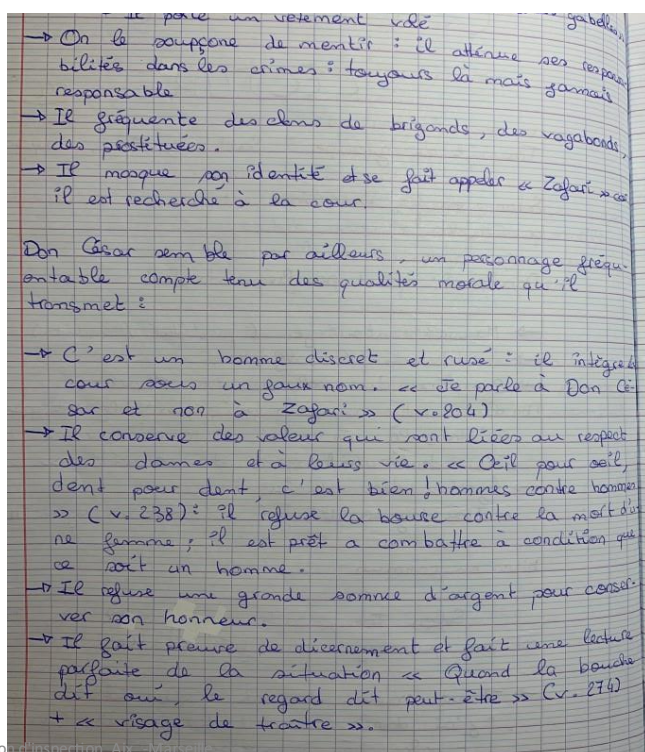 + Il porte un vêtement volé gabelles
→ On le soupçone de mentir : il atténue ses respon
bilités dans les crimes : toujours là mais jamais
responsable
→ Il fréquente des clans de brigands, des vagabonds,
des prostituées.
→ Il masque son identité et se fait appeler « Zafari » car
il est recherché à la cour.
Don César semble par ailleurs, un personnage fréqu-
entable compte tenu des qualités morale qu'il
transmet :
→ C'est un homme discret et rusé : il intègre la
cour sous un faux nom. « Je parle à Don Cé-
sar et non à Zafari » (v.204)
→ Il conserve des valeur qui sont liées au respect
des dames et à leurs vie. « Œil pour œil,
dent pour dent, c'est bien ! hommes contre hommes
» (v. 238) : il refuse la bourse contre la mort d'u
ne femme ; il est prêt a combattre à condition que
ce soit un homme.
→ Il refuse une grande somme d'argent pour conser-
ver son honneur.
→ Il fait preuve de dicernement et fait une lecture
parfaite de la situation « Quand la bouche
dit oui, le regard dit peut-être » (v. 274)
+ « visage de traître ».